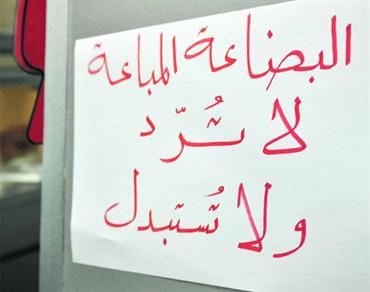 البضاعة المباعة
لا تُرّد
ولا تُستبدل